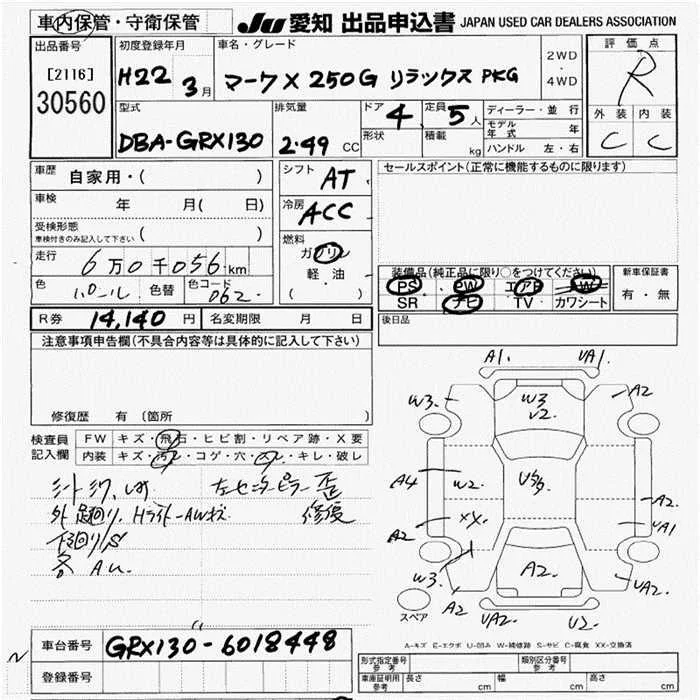 車内保管・守衛保管
JU 愛知 出品申込書 JAPAN USED CAR DEALERS ASSOCIATION
出品番号 [2116] 30560
初度登録年月 H22 3月
車名・グレード マークX 250G リラックス PKG
2WD・4WD
評価点 R
外装 C 内装 C
型式 DBA-GRX130
排気量 2.49 CC
ドア 4 形状
定員 5人 積載 kg
ディーラー・並行
モデル年式 年
ハンドル 左・右
車歴 自家用・( )
車検 年 月( 日)
受検形態 車検付きのみ記入して下さい ( )
走行 6万0千056km
色 パール 色替 色コード 062
シフト AT
冷房 ACC
燃料 ガソリン 軽油 ( )
セールスポイント(正常に機能するものに限ります)
装備品(純正品に限り○をつけてください)
PS・PW エアB W
SR ナビ TV カワシート
新車保証書 有・無
R券 14,140円 名変期限 月 日
後日品
注意事項申告欄(不具合内容等は具体的に記入して下さい)
修復歴 有(箇所 )
検査員記入欄
FW キズ・飛石・ヒビ割・リペア跡・X要
内装 キズ・汚レ・コゲ・穴・キレ・破レ
シートシワ 左センターピラー歪
外 足回り Hライト AWキズ 修復
下回りS
各 AU
A1 UA1
W3 W3 U2 A2
A4 W2 A2
A2 XX UA1
W3 A2 UA2
A2 UA2 U2
スペア
A-キズ E-エクボ U-凹み W-補修跡 S-サビ C-腐食 XX-交換済
車台番号 GRX130-6018448
登録番号
形式指定番号 参考 類別区分番号 参考
車庫証明用 参考 長さ cm 幅 cm 高さ cm